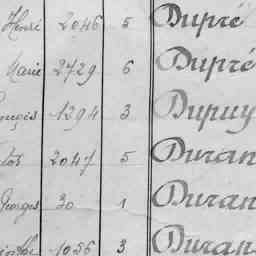 Henri 2046 5 Dupré
Marie 2729 6 Dupré
1294 3 Dupuy
5 Duran
Georges 30 1 Duran
1056 3 Duran